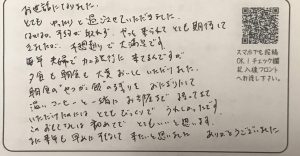 お世話になりました。
とても ゆったりと 過ごさせていただきました。
なかなか 予約が取れず、やっと来られて とても期待して
きましたが、予想通り で 大満足です。
毎年 夫婦で カニを 来てるんですが
夕食も 朝食も 大変おいしくいただけました。
朝食の"セコガニ飯"の残りを おにぎりにして
温いコーヒーと一緒に お部屋まで 持ってきて
いただけたのには とてもびっくりで うれしかったです。
このおもてなしは 初めてで とてもいいと思います。
また来年も 早めに予約して 来たいと思いました
ありがとうございました。
スマホでも投稿
OK!チェック欄
記入後フロント
へお渡し下さい。